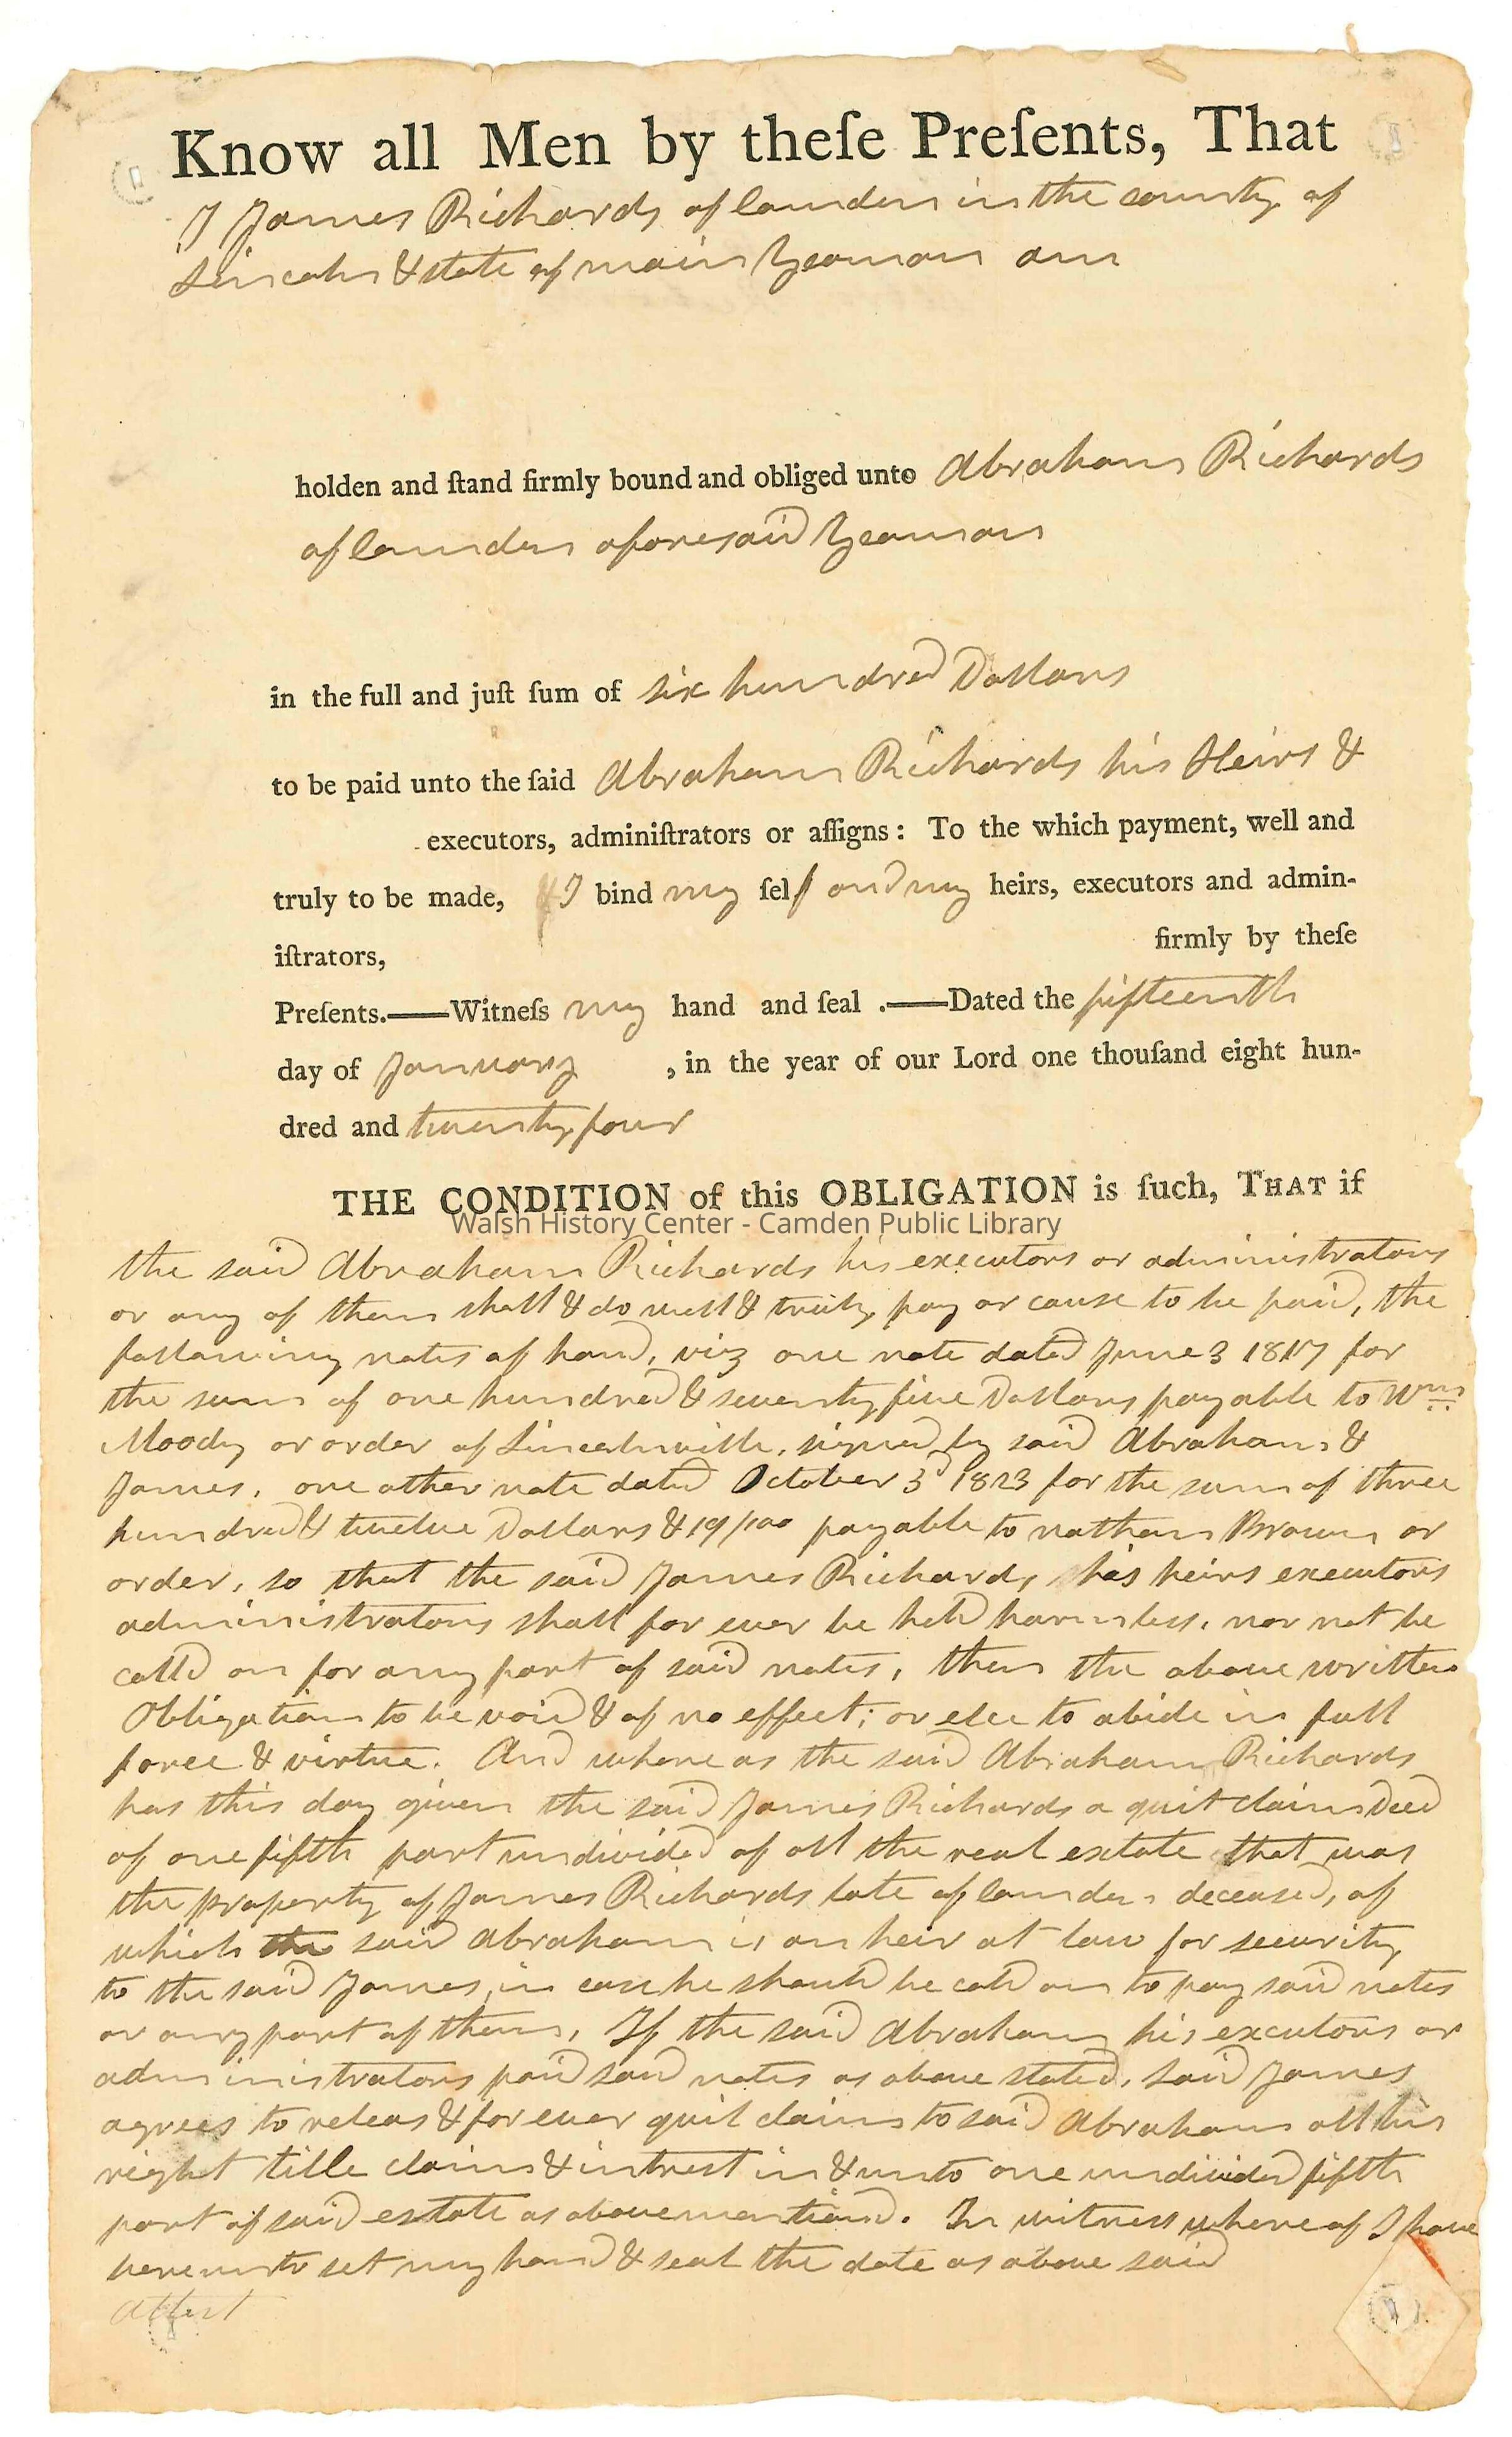 Know all Men by theſe Preſents, That
I James Richards of Camden in the county of
Lincoln & state of main Yeoman am
holden and ſtand firmly bound and obliged unto Abraham Richards
of Camden aforesaid Yeoman
in the full and juſt ſum of six hundred Dollars
to be paid unto the ſaid Abraham Richards his Heirs &
executors, adminiſtrators or aſſigns: To the which payment, well and
truly to be made, I bind my ſelf and my heirs, executors and admin-
iſtrators, firmly by theſe
Preſents.——Witneſs my hand and ſeal .——Dated the fifteenth
day of January , in the year of our Lord one thouſand eight hun-
dred and twenty four
THE CONDITION of this OBLIGATION is ſuch, THAT if
Walsh History Center - Camden Public Library
the said Abraham Richards his executors or administrators
or any of them shall & do well & truly pay or cause to be paid, the
following notes of hand, viz one note dated June 3 1817 for
the sum of one hundred & seventy five Dollars payable to Wm
Moody or order of Lincolnville, signed by said Abraham &
James, one other note dated October 3d 1823 for the sum of three
hundred & twelve Dollars & 19/100 payable to nathan Brown or
order, so that the said James Richards his heirs executors
administrators shall for ever be held harmless, nor not be
calld on for any part of said notes, then the above written
Obligation to be void & of no effect; or elce to abide in full
force & virtue. And where as the said Abraham Richards
has this day given the said James Richards a quit claim Deed
of one fifth part undivided of all the real estate that was
the property of James Richards late of Camden deceased, of
which the said Abraham is an heir at law for security
to the said James, in case he should be calld on to pay said notes
or any part of them, If the said Abraham his executors or
administrators paid said notes as above stated, said James
agrees to releas & for ever quit claim to said Abraham all his
right title claim & intrest in & unto one undivided fifth
part of said estate as above mentiond. In witness where of I have
hereunto set my hand & seal the date as above said
Attest